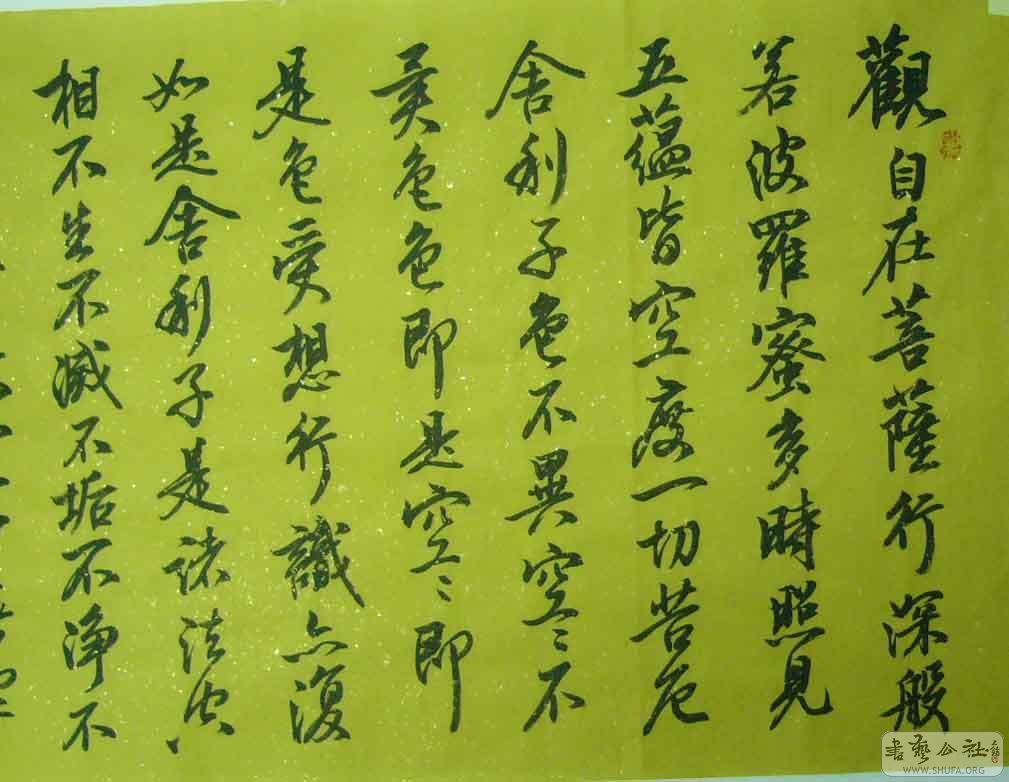 觀自在菩薩行深般
若波羅蜜多時照見
五蘊皆空度一切苦厄
舍利子色不異空空不
異色色即是空空即
是色受想行識亦復
如是舍利子是諸法空
相不生不滅不垢不净不
書藝公社
WWW.SHUFA.ORG